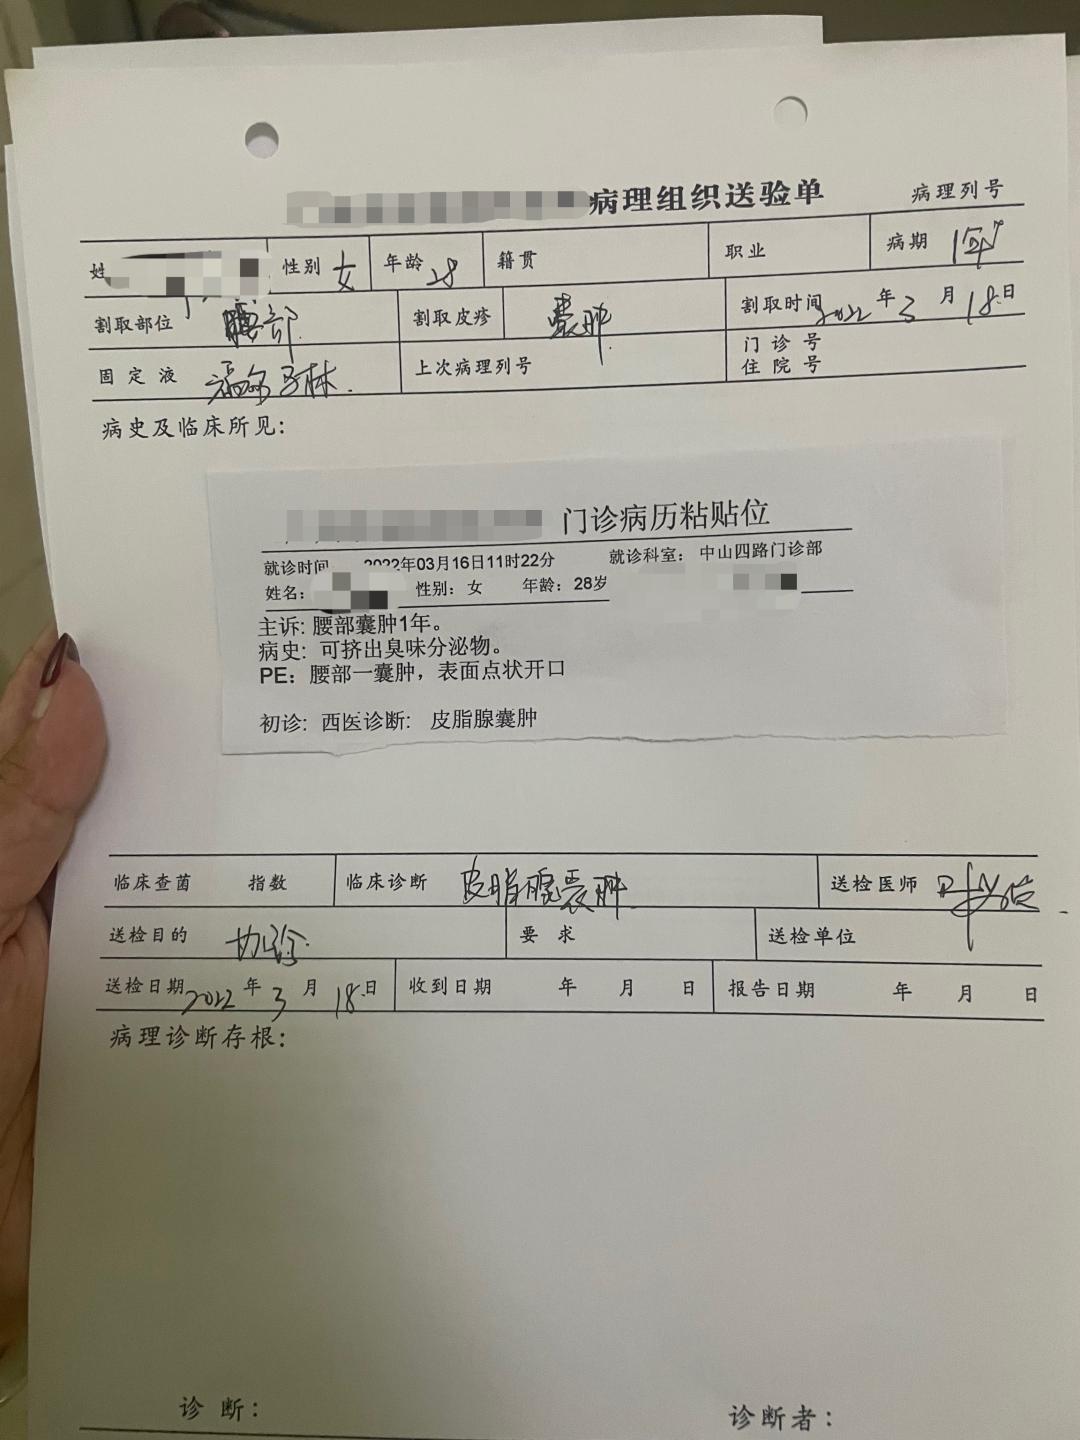 病理组织送验单 病理列号
姓 性别 女 年龄 28 籍贯 职业 病期 1年
割取部位 腰部 割取皮疹 囊肿 割取时间 2022年3月18日
固定液 福尔马林. 上次病理列号 门诊号
住院号
病史及临床所见:
门诊病历粘贴位
就诊时间 2022年03月16日11时22分 就诊科室: 中山四路门诊部
姓名: 性别: 女 年龄: 28岁
主诉: 腰部囊肿1年。
病史: 可挤出臭味分泌物。
PE: 腰部一囊肿，表面点状开口
初诊: 西医诊断: 皮脂腺囊肿
临床查菌 指数 临床诊断 皮脂腺囊肿. 送检医师
送检目的 协诊. 要求 送检单位
送检日期 2022年3月18日 收到日期 年 月 日 报告日期 年 月 日
病理诊断存根:
诊断: 诊断者: